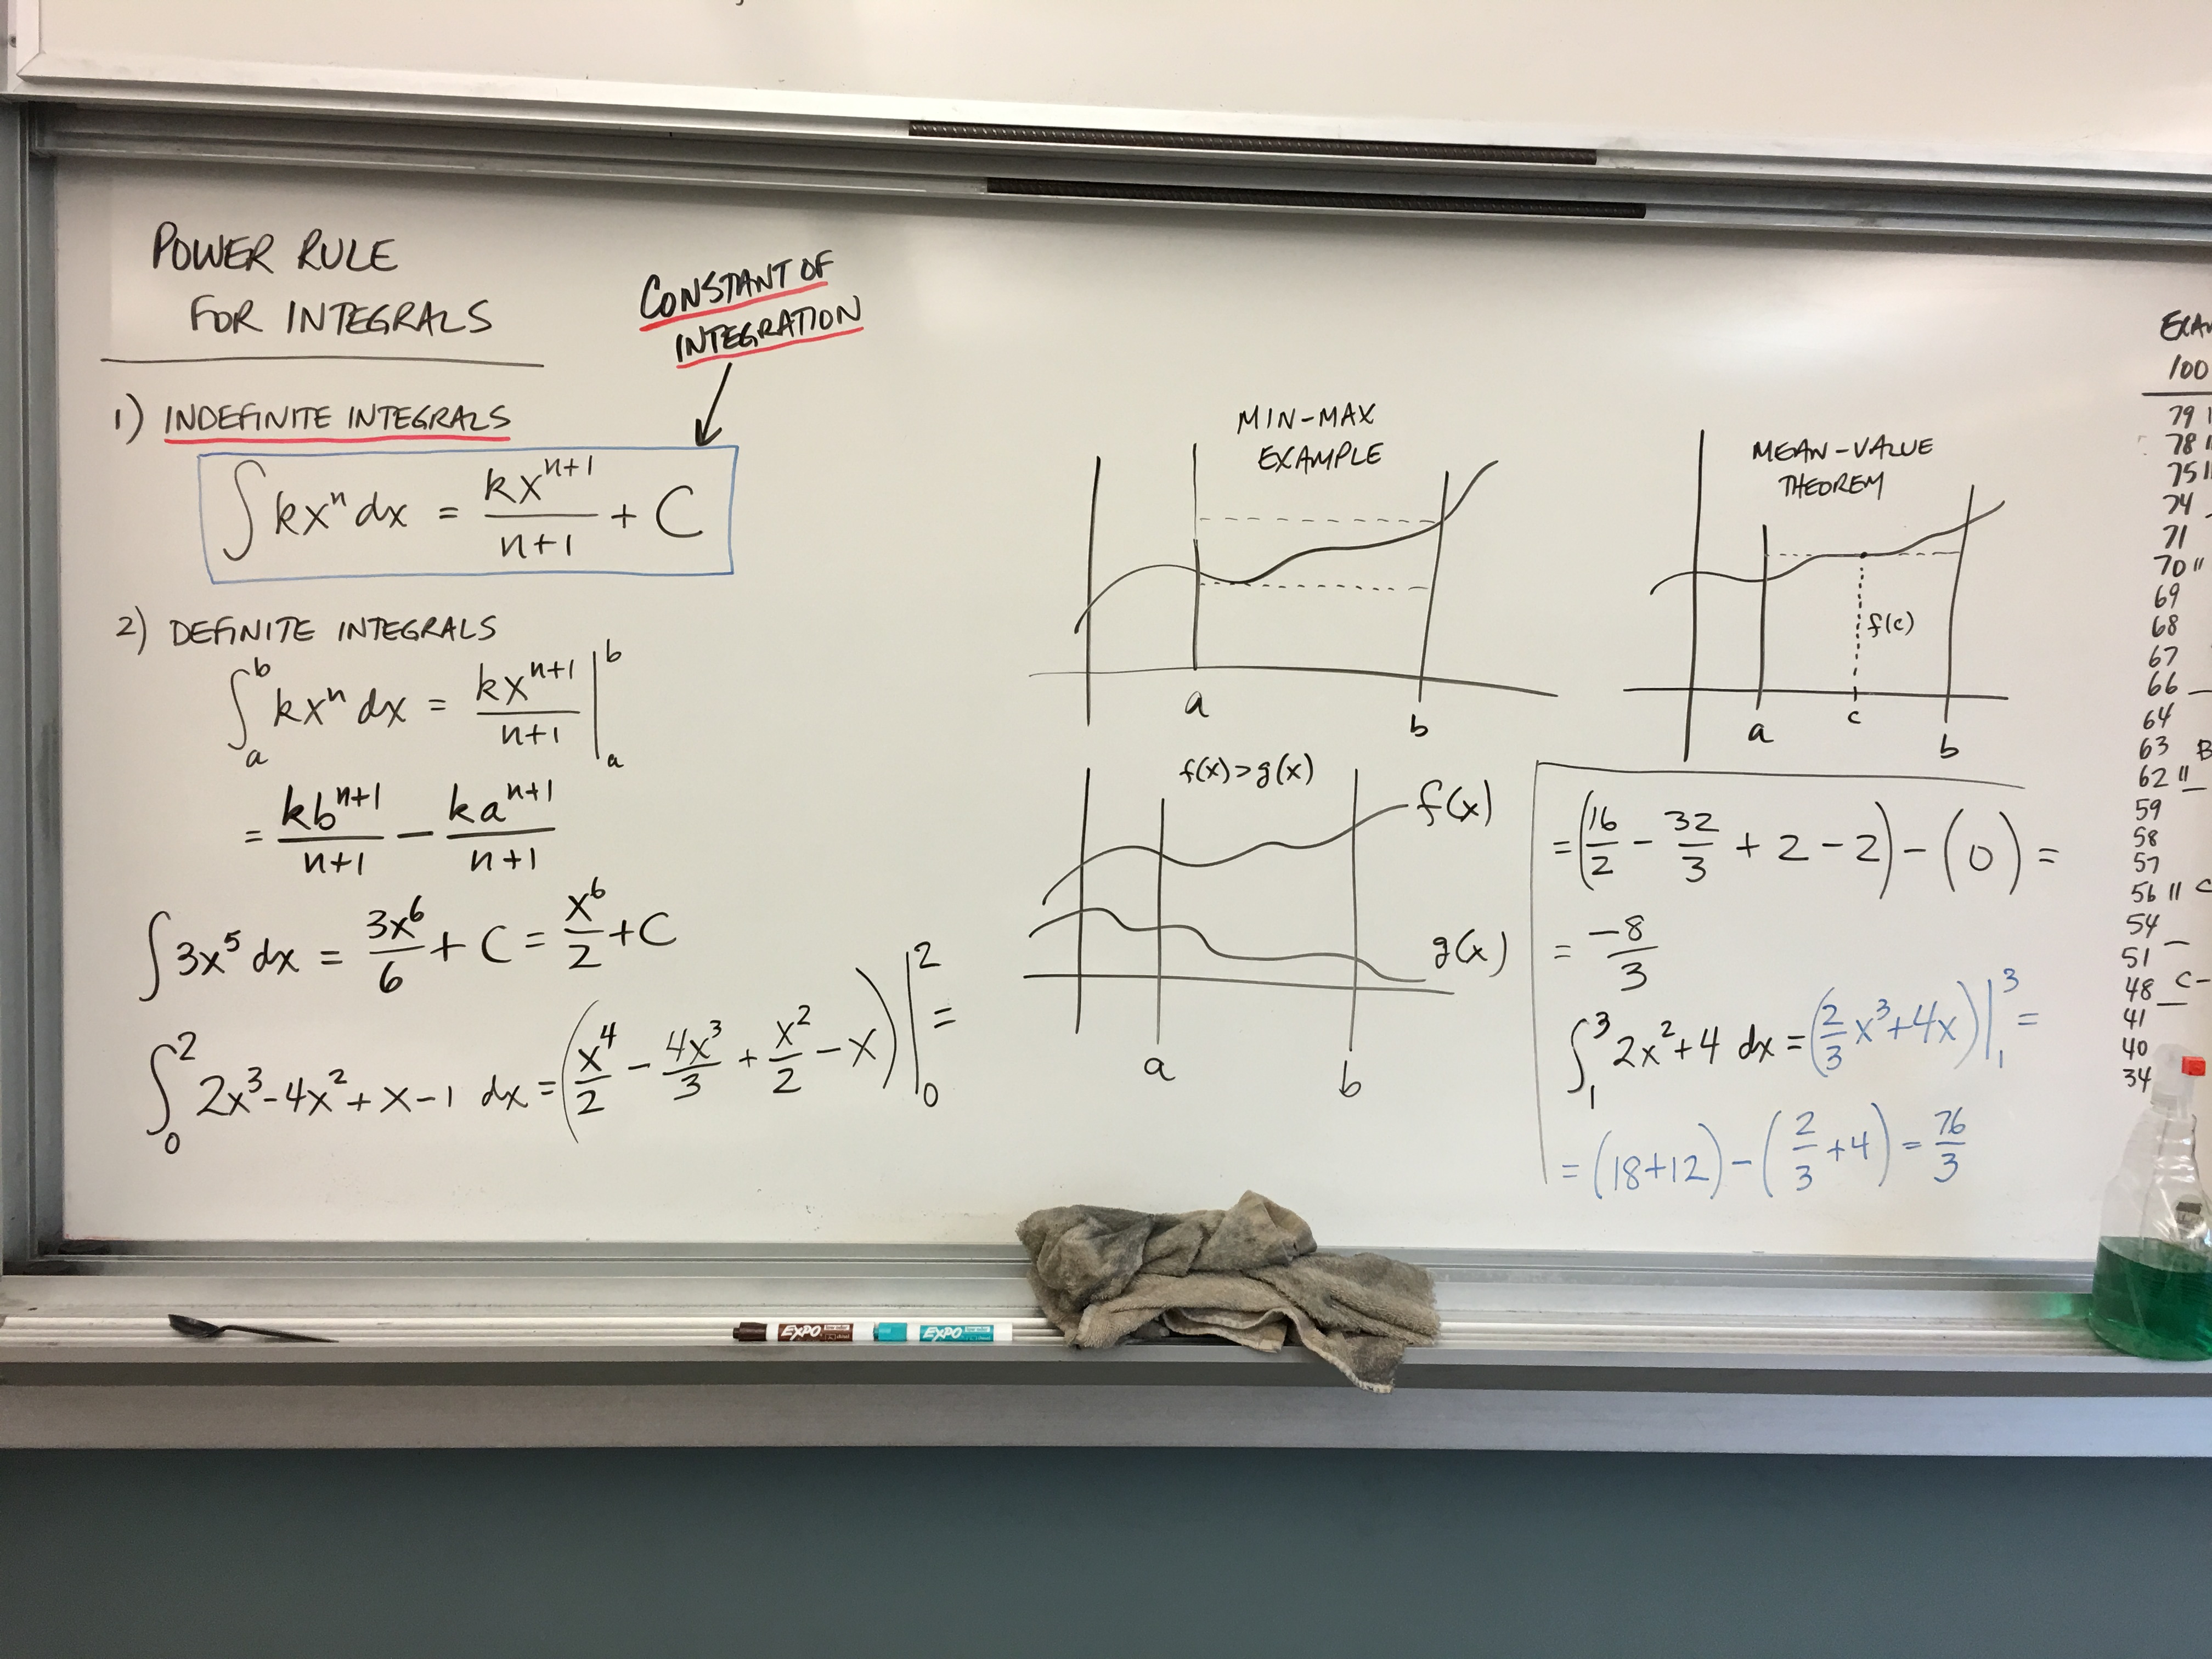 POWER RULE
FOR INTEGRALS
CONSTANT OF
INTEGRATION
1) INDEFINITE INTEGRALS
∫ kxⁿ dx = kxⁿ⁺¹/(n+1) + C
2) DEFINITE INTEGRALS
∫ₐᵇ kxⁿ dx = kxⁿ⁺¹/(n+1) |ₐᵇ
= kbⁿ⁺¹/(n+1) − kaⁿ⁺¹/(n+1)
∫ 3x⁵ dx = 3x⁶/6 + C = x⁶/2 + C
∫₀² 2x³-4x²+x-1 dx = (x⁴/2 − 4x³/3 + x²/2 − x) |₀² =
MIN-MAX
EXAMPLE
a
b
f(x)>g(x)
f(x)
g(x)
a
b
MEAN-VALUE
THEOREM
f(c)
a
c
b
= (16/2 − 32/3 + 2 − 2) − (0) =
= −8/3
∫₁³ 2x²+4 dx = (2/3 x³+4x) |₁³ =
= (18+12) − (2/3 +4) = 76/3
100
79
78
75
74
71
70 11
69
68
67
66
64
63 B
62 11
59
58
57
56 11 C
54
51
48 C-
41
40
34
EXPO
EXPO